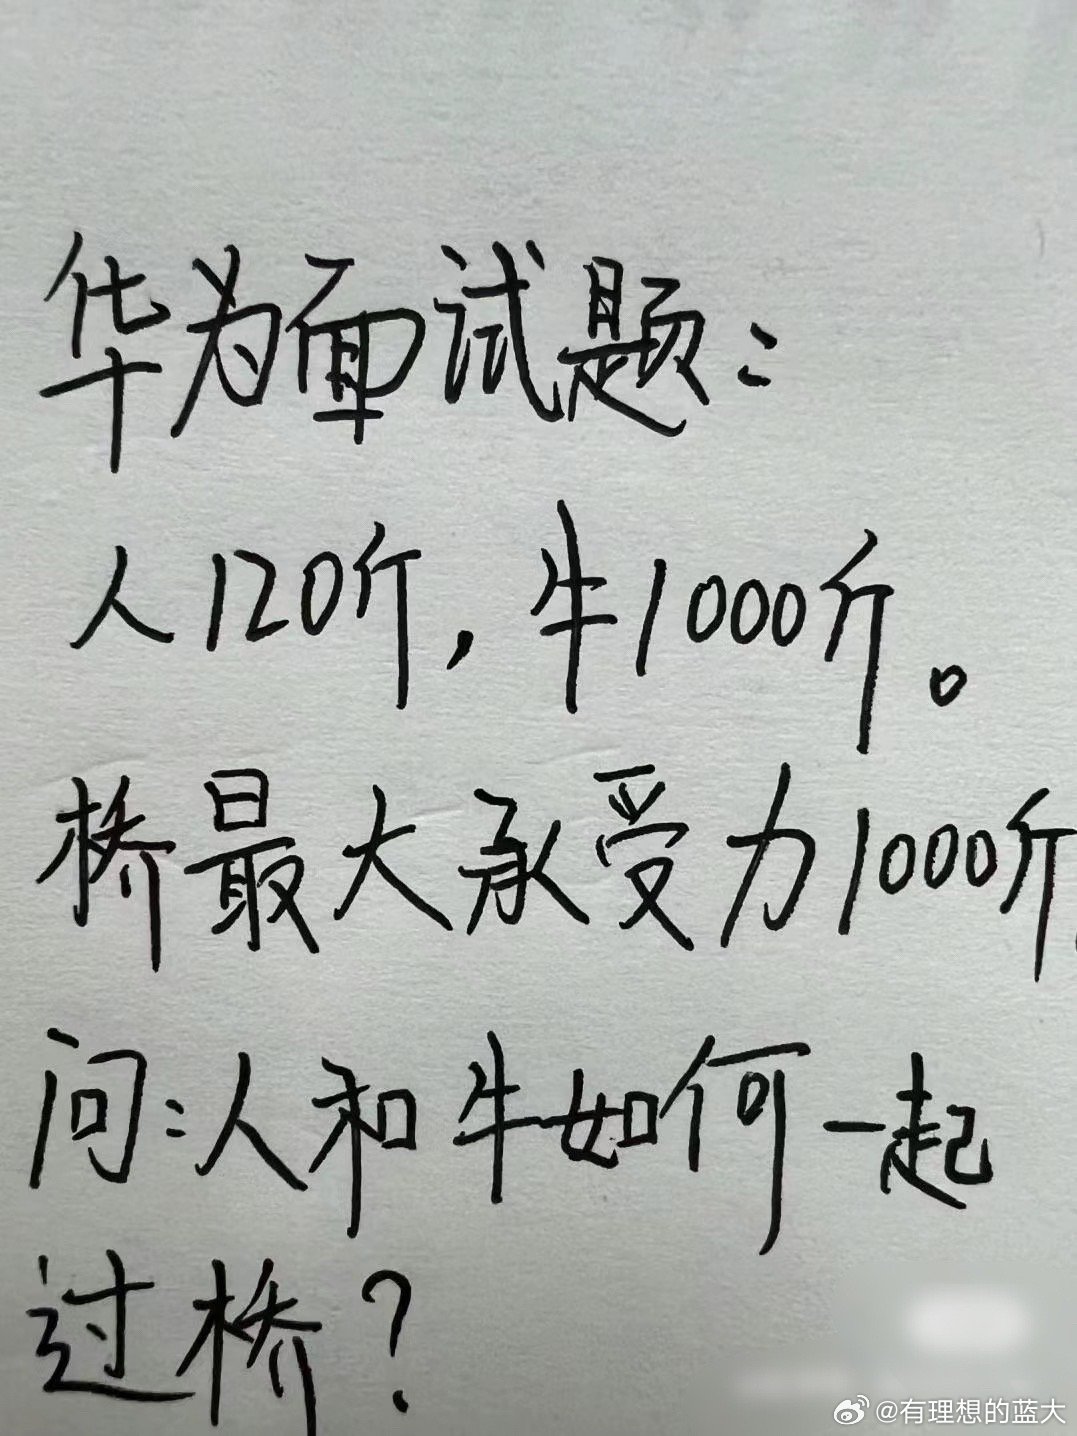 华为面试题：
人120斤，牛1000斤。
桥最大承受力1000斤
问：人和牛如何一起
过桥？
@有理想的蓝大